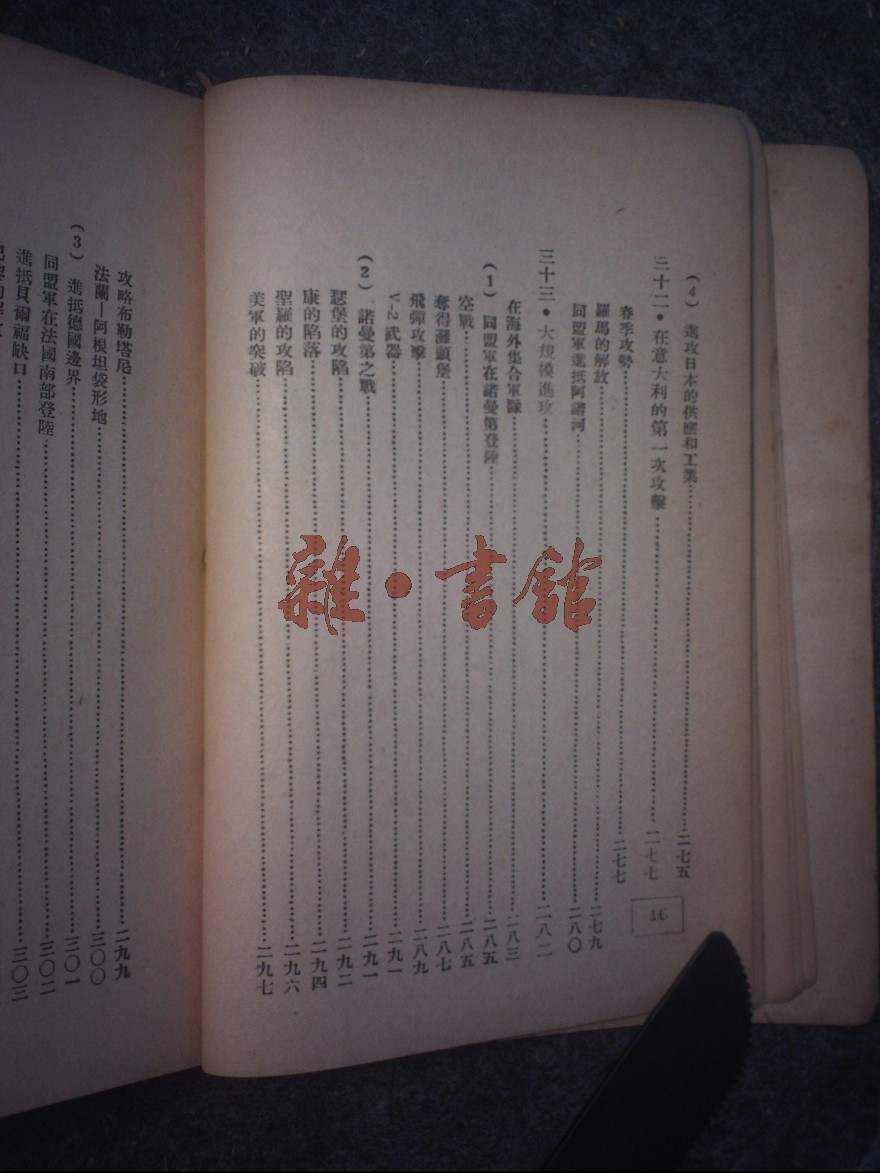 (4) 進攻日本的供應和工業……二七五
三十二•在意大利的第一次攻擊……二七七
春季攻勢……二七七
羅馬的解放……二七九
同盟軍進抵阿諾河……二八〇
三十三•大規模進攻……二八二
在海外集合軍隊……二八三
(1) 同盟軍在諾曼第登陸……二八五
空戰……二八五
奪得灘頭堡……二八七
飛彈攻擊……二八九
V-2武器……二九一
(2) 諾曼第之戰……二九一
瑟堡的攻陷……二九二
康的陷落……二九四
聖羅的攻陷……二九六
美軍的突破……二九七
16
攻略布勒塔尼……二九九
法蘭—阿根坦袋形地……三〇〇
(3) 進抵德國邊界……三〇一
同盟軍在法國南部登陸……三〇二
進抵貝爾福缺口……三〇三
雜•書館